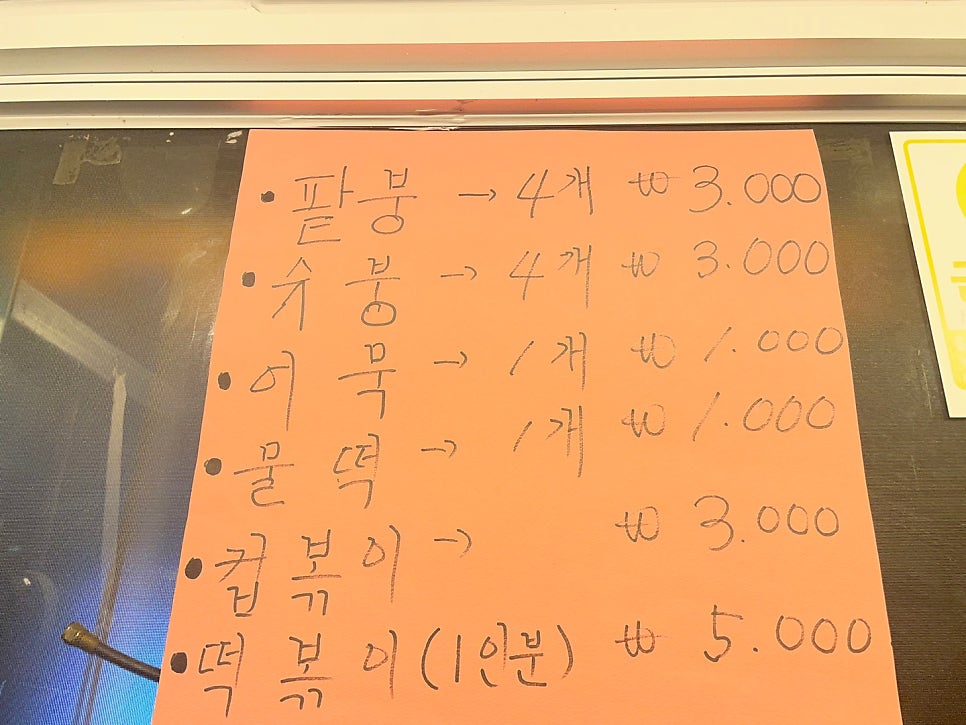 • 팥붕 → 4개 ₩ 3.000
• 슈붕 → 4개 ₩ 3.000
• 어묵 → 1개 ₩ 1.000
• 물떡 → 1개 ₩ 1.000
• 컵볶이 → ₩ 3.000
• 떡볶이(1인분) ₩ 5.000